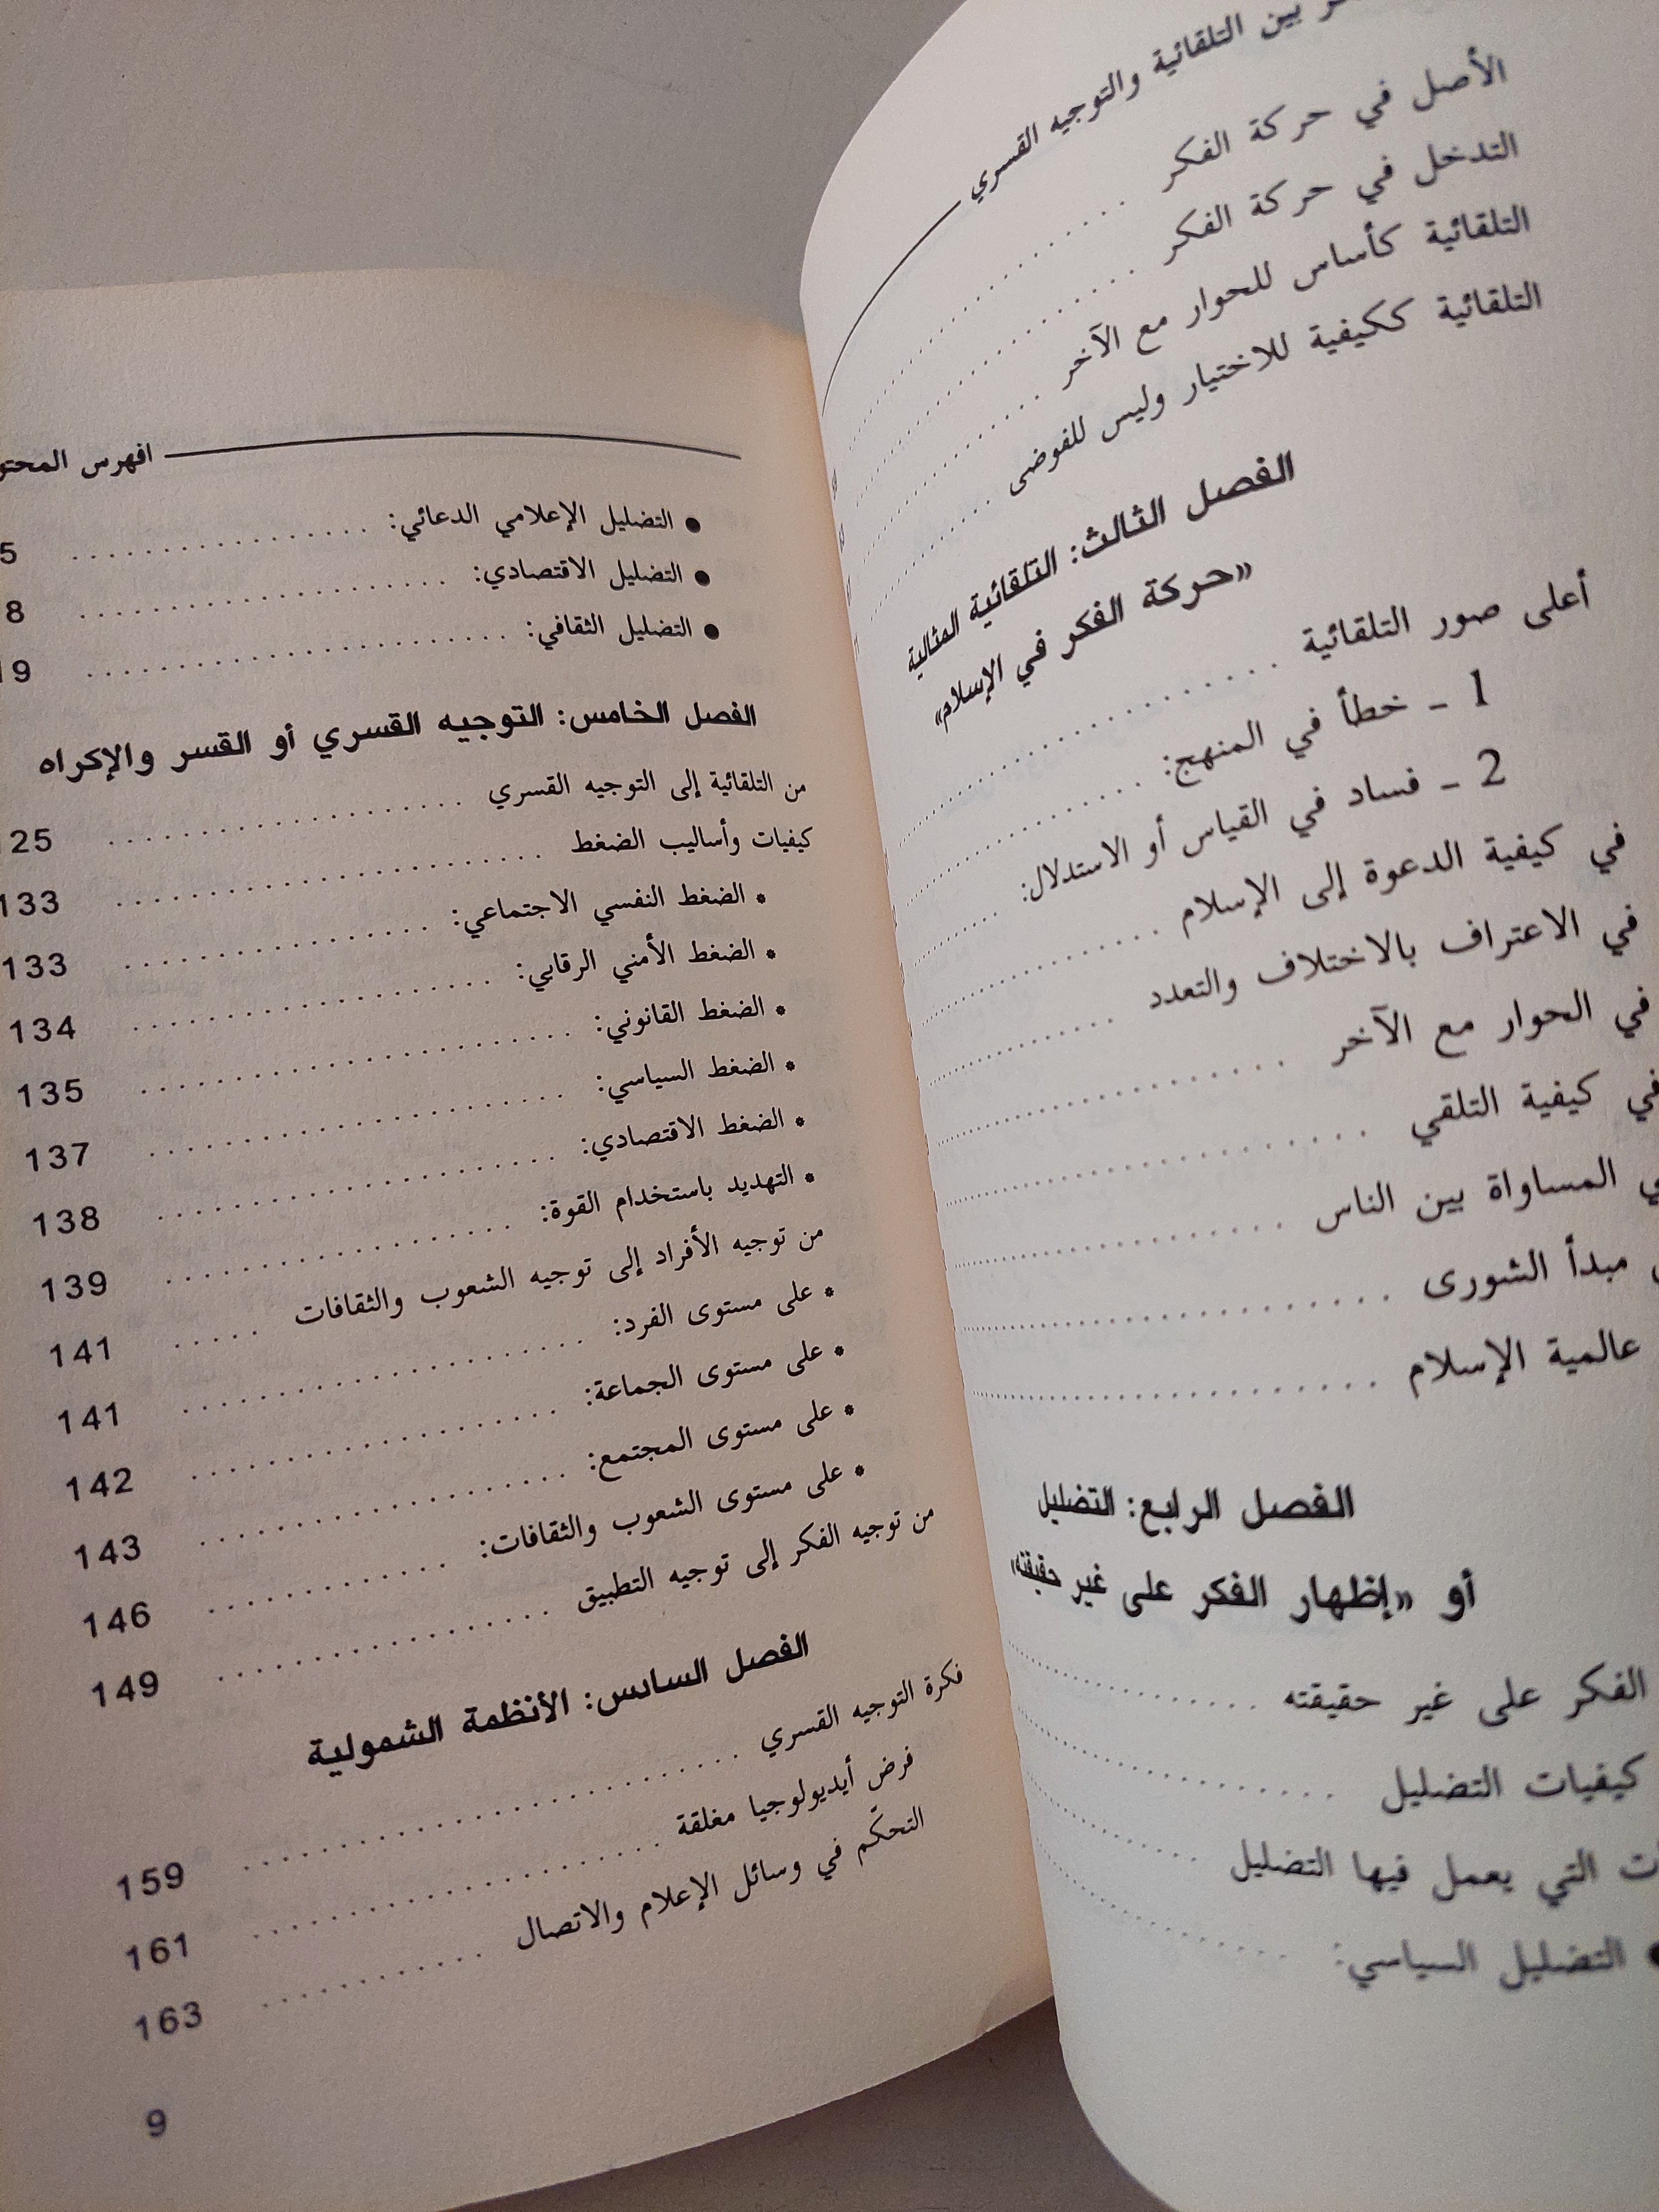 بين التلقائية والتوجيه القسري
الأصل في حركة الفكر
التدخل في حركة الفكر
التلقائية كأساس للحوار مع الآخر
التلقائية ككيفية للاختيار وليس للفوضى
الفصل الثالث: التلقائية المثالية
«حركة الفكر في الإسلام»
أعلى صور التلقائية
1 ـ خطأ في المنهج:
2 ـ فساد في القياس أو الاستدلال:
في كيفية الدعوة إلى الإسلام
في الاعتراف بالاختلاف والتعدد
في الحوار مع الآخر
في كيفية التلقي
المساواة بين الناس
مبدأ الشورى
عالمية الإسلام
الفصل الرابع: التضليل
أو «إظهار الفكر على غير حقيقته»
الفكر على غير حقيقته
كيفيات التضليل
التي يعمل فيها التضليل
● التضليل السياسي:
افهرس
● التضليل الإعلامي الدعائي:
● التضليل الاقتصادي:
● التضليل الثقافي:
الفصل الخامس: التوجيه القسري أو القسر والإكراه
من التلقائية إلى التوجيه القسري 125
كيفيات وأساليب الضغط 133
* الضغط النفسي الاجتماعي: 133
* الضغط الأمني الرقابي: 134
* الضغط القانوني: 135
* الضغط السياسي: 137
* الضغط الاقتصادي: 138
* التهديد باستخدام القوة: 139
من توجيه الأفراد إلى توجيه الشعوب والثقافات 141
* على مستوى الفرد: 141
* على مستوى الجماعة: 142
* على مستوى المجتمع: 143
* على مستوى الشعوب والثقافات: 146
من توجيه الفكر إلى توجيه التطبيق 149
الفصل السادس: الأنظمة الشمولية
فكرة التوجيه القسري 159
فرض أيديولوجيا مغلقة 161
التحكّم في وسائل الإعلام والاتصال 163
9